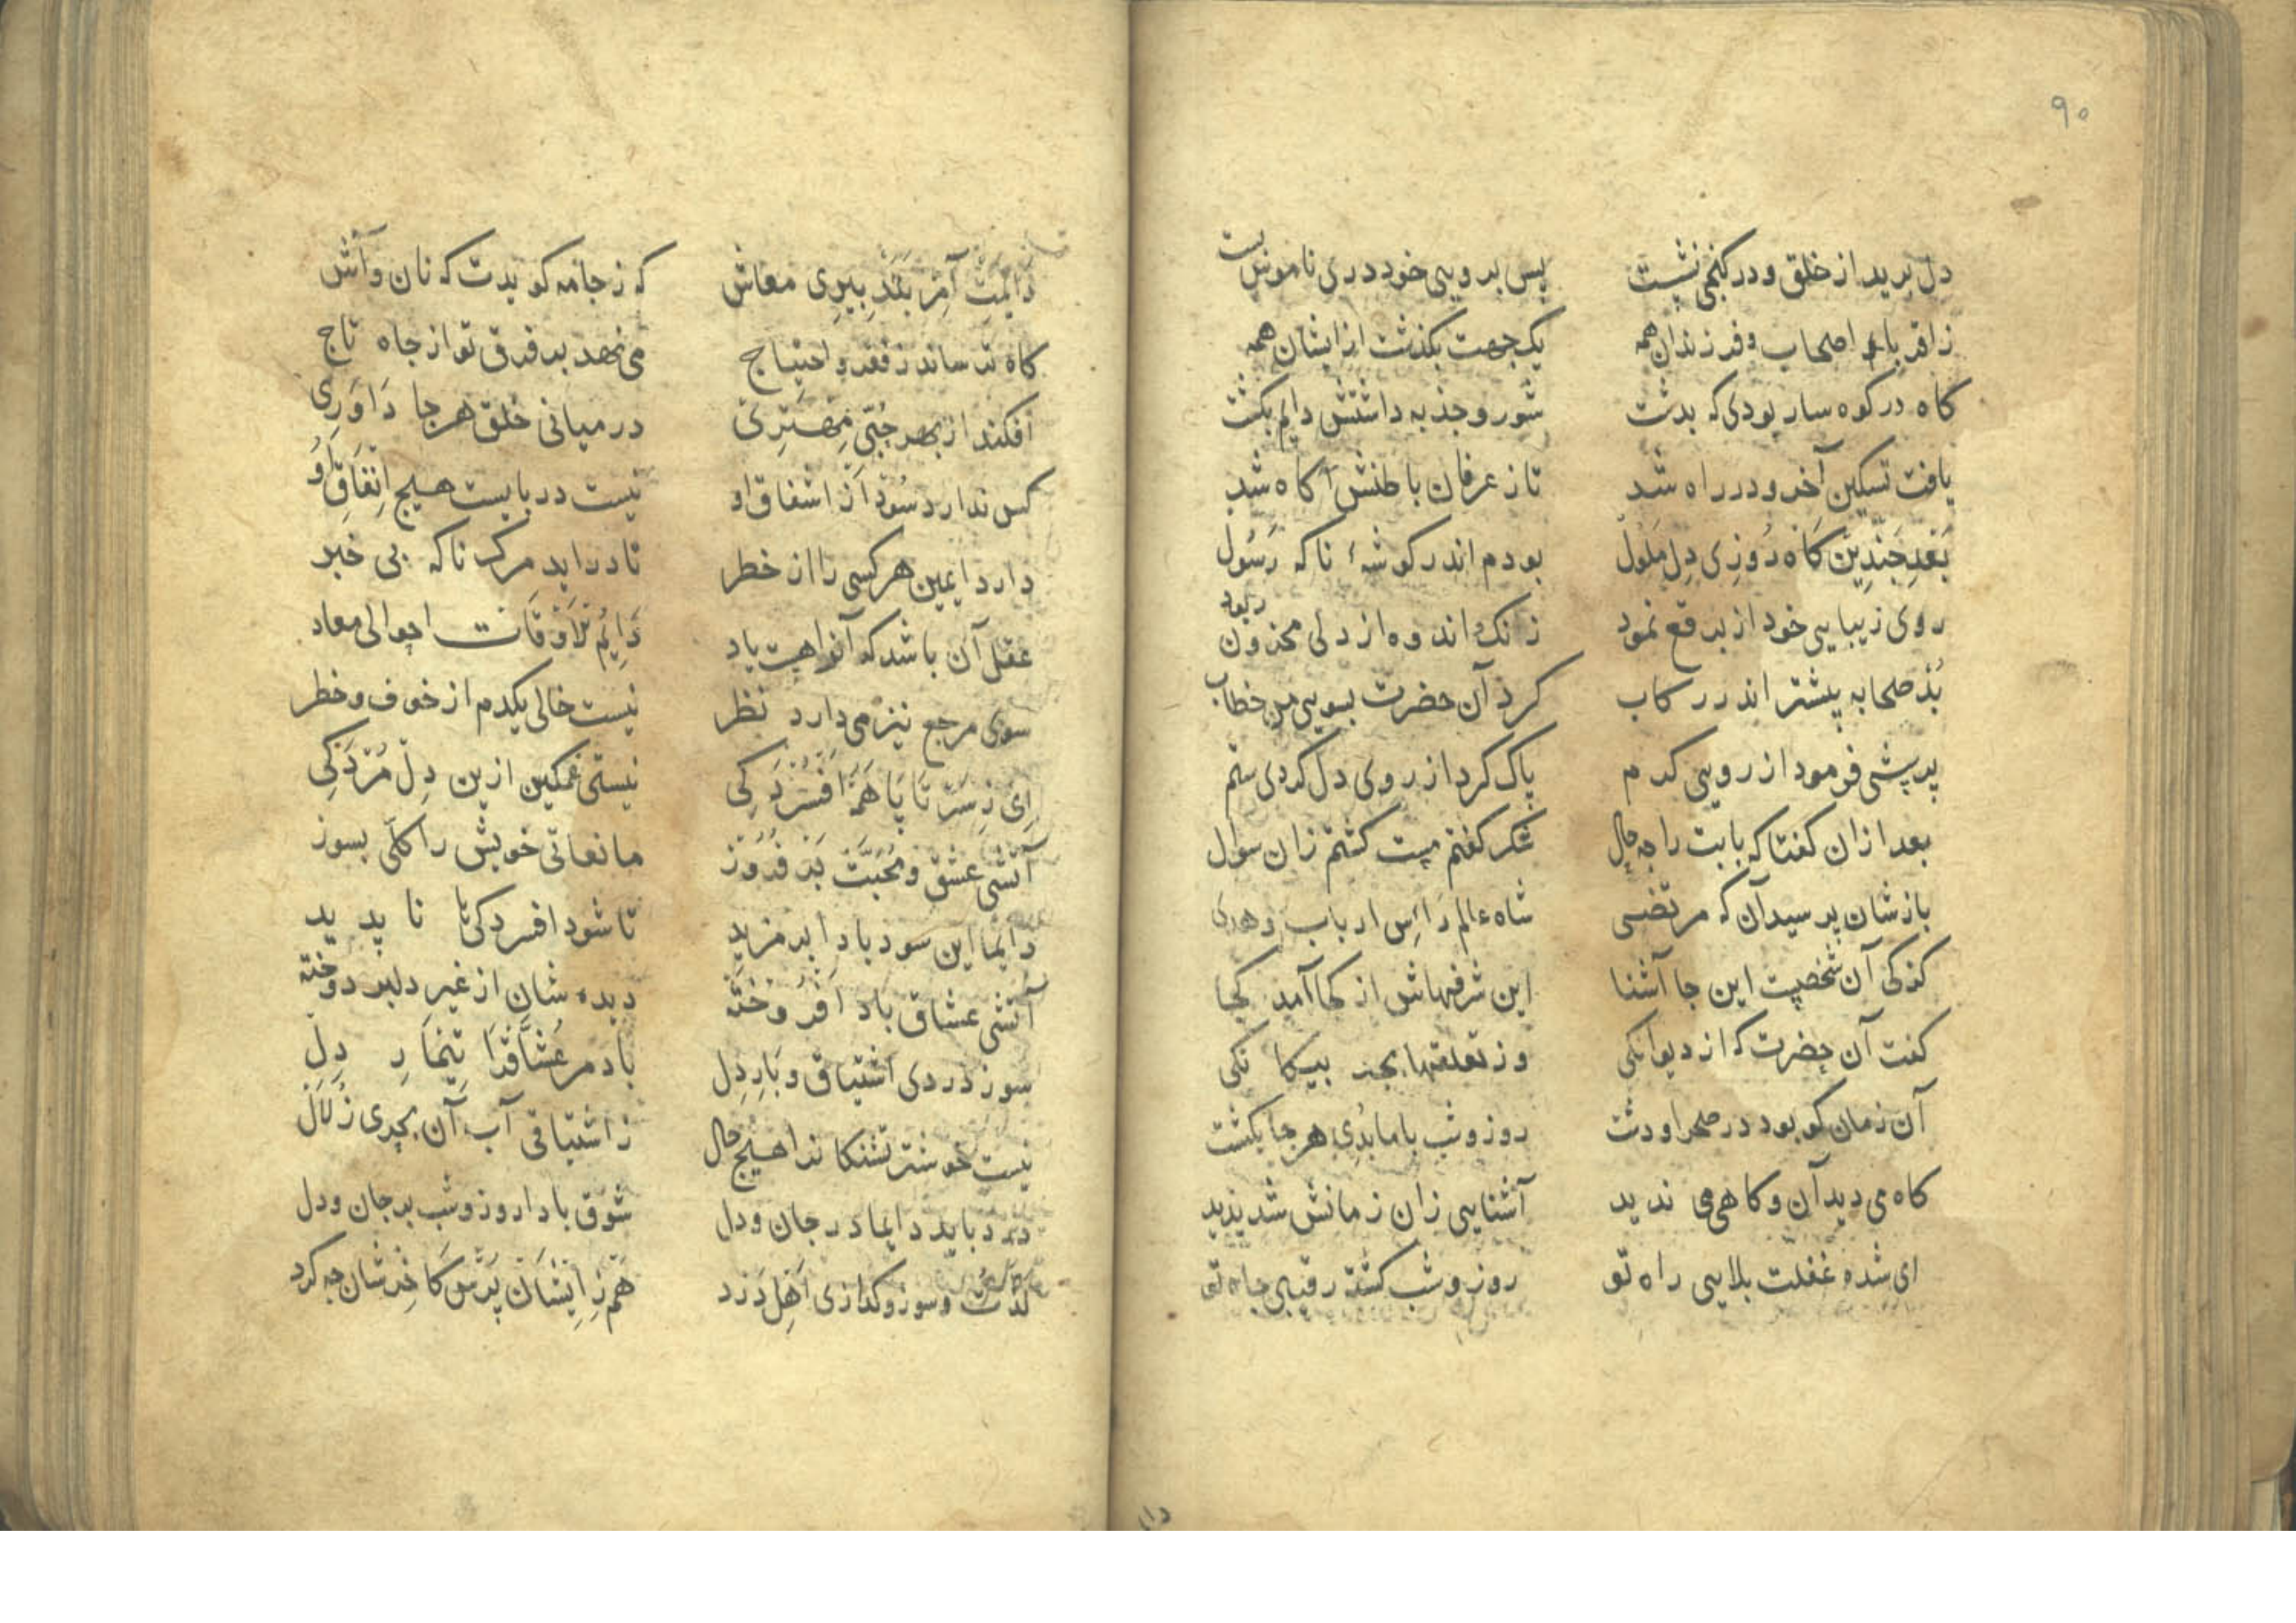 ۹۰
دل برید از خلق و در کنجی نشست پس بر ویی خود دری ناموس بست
ز اقرباء و اصحاب و فرزندان همه یک جهت بکذشت از ایشان همه
کاه در کوه سار بودی که بدشت شور و جذبه داشتش دایم بکشت
یافت تسکین آخر و در راه شد تا ز عرفان باطنش آکاه شد
بَعْدِ چَنْدِین کَاه رُوزِی دِل مَلُول بودم اندر کوشهٔ ناکه رَسُول
روی زیبایی خود از برقع نمود زنک اندوه از دلی محزون ربود
بُد صحابه پیشتر اندر رکاب کرد آن حضرت بسویی من خطاب
پرسشی فرمود از رویی کرم پاک کرد از روی دل کردی ستم
بعد از آن کفتا که بابت را چه حال شکر کفتم مست کشتم زان سوال
باز شان پرسید آن که مرتضی شاه عالم رأس ارباب و هدی
کز کی آن شخصیت این جا آشنا این شرفهاش از کجا آمد کجا
کفت آن حضرت که از دیوانکی وز تعلقها بجد بیکانکی
آن زمان کو بود در صحرا و دشت روز و شب با ما بُدِی هر جا بکشت
کاه می دید آن و کاهی می ندید آشنایی زان زمانش شد پدید
ای شده غفلت بلایی راه تو روز و شب کشته رقیبی جاه تو
دایمت آمر بَنَدْبِیرِی معاش که ز جامه کو بدت که نان و آش
کاه ترساند ز فقر و احتیاج می نهد بر فرق تو از جاه تاج
افکند از بهر حُبّی مِهْتَرِی در میانی خلق هر جا دَاوَرِی
کس ندارد سُود از اشفاق او نیست در بایست هیچ اِنْفَاقِ اُو
دارد ایمین هر کسی را از خطر تا دراید مرک ناکه بی خبر
عقل آن باشد که آنراهست یاد دَایِمُ الْاَوْقَات احوالی معاد
سوی مرجع نیز می دارد نظر نیست خالی یکدم از خوف و خطر
اِی زِ سَرْ تَا پَا هَمَه اَفْسُرْدَکِی نیستی غمکین ازین دِلْ مُرْدَکِی
آتشی عشق و مُحَبَّتْ بَرْ فُرُوزْ مانعاتی خویش را کلّی بسوز
دایما این سود بادا بر مزید تا شود افسردکی‌تا نا پدید
آتشی عشاق باد اَفْرُوخْتَه دیده شان از غیر دلبر دوخته
سوز دردی اشتیاق و بَارِ دِل باد مر عُشَّاقْرَا تِیْمَارِ دِل
نیست خوشتر تشنکانرا هیچ حال ز اشتیاقی آب، آن بحری زُلَال
درد باید دایما در جان و دل شَوْق بادا روز و شب بر جان و دل
لذت و سوز و کدازی اَهْلِ دَرْد هَمْ زِ اِیشَان پُرْس کَاخِر شان چه کرد